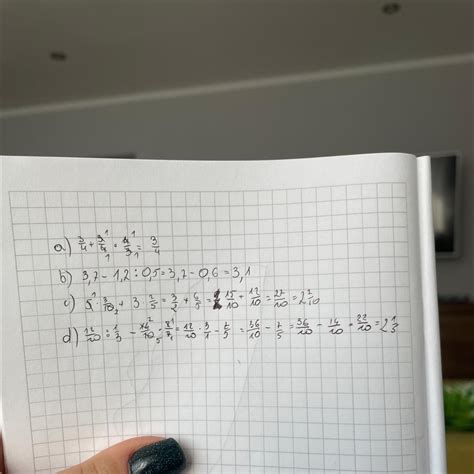 a) 3/4 + 3/4 · 4/3 = 3/4
b) 3,7 - 1,2 : 0,5 = 3,7 - 0,6 = 3,1
c) 5 · 3/10 + 3 · 2/5 = 3/2 + 6/5 = 15/10 + 12/10 = 27/10 = 2 7/10
d) 12/10 : 1/3 - = 12/10 · 3/1 - 7/5 = 36/10 - 7/5 = 36/10 - 14/10 = 22/10 = 2